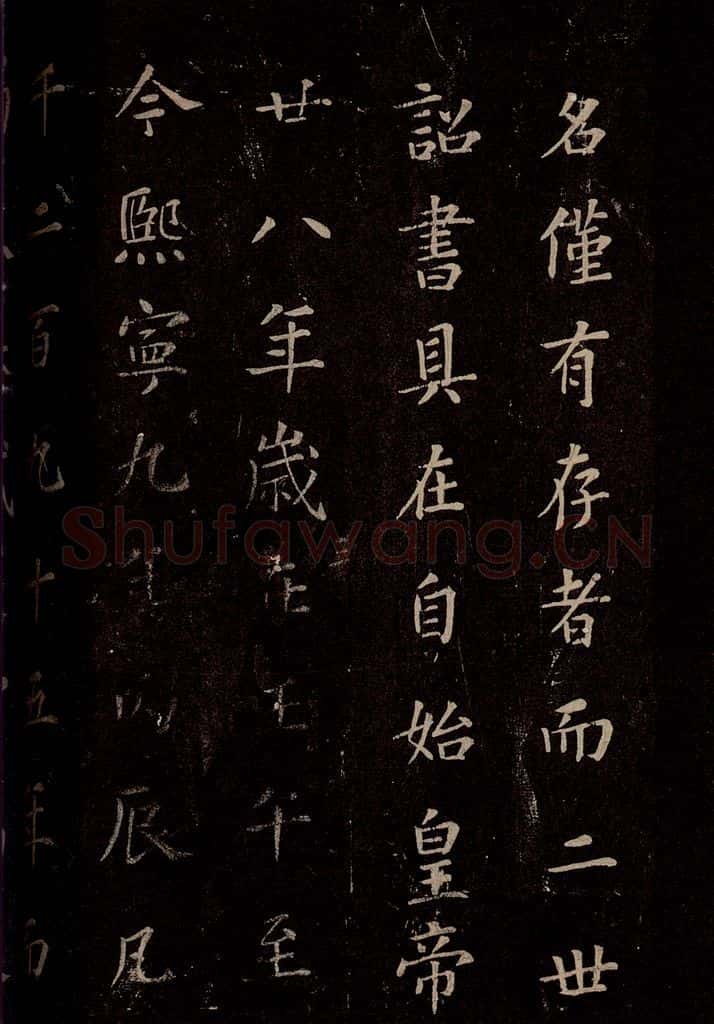 名僅有存者而二世
詔書具在自始皇帝
廿八年歲在壬午至
今熙寧九年丙辰凡
千二百九十五年而
Shufawang.CN